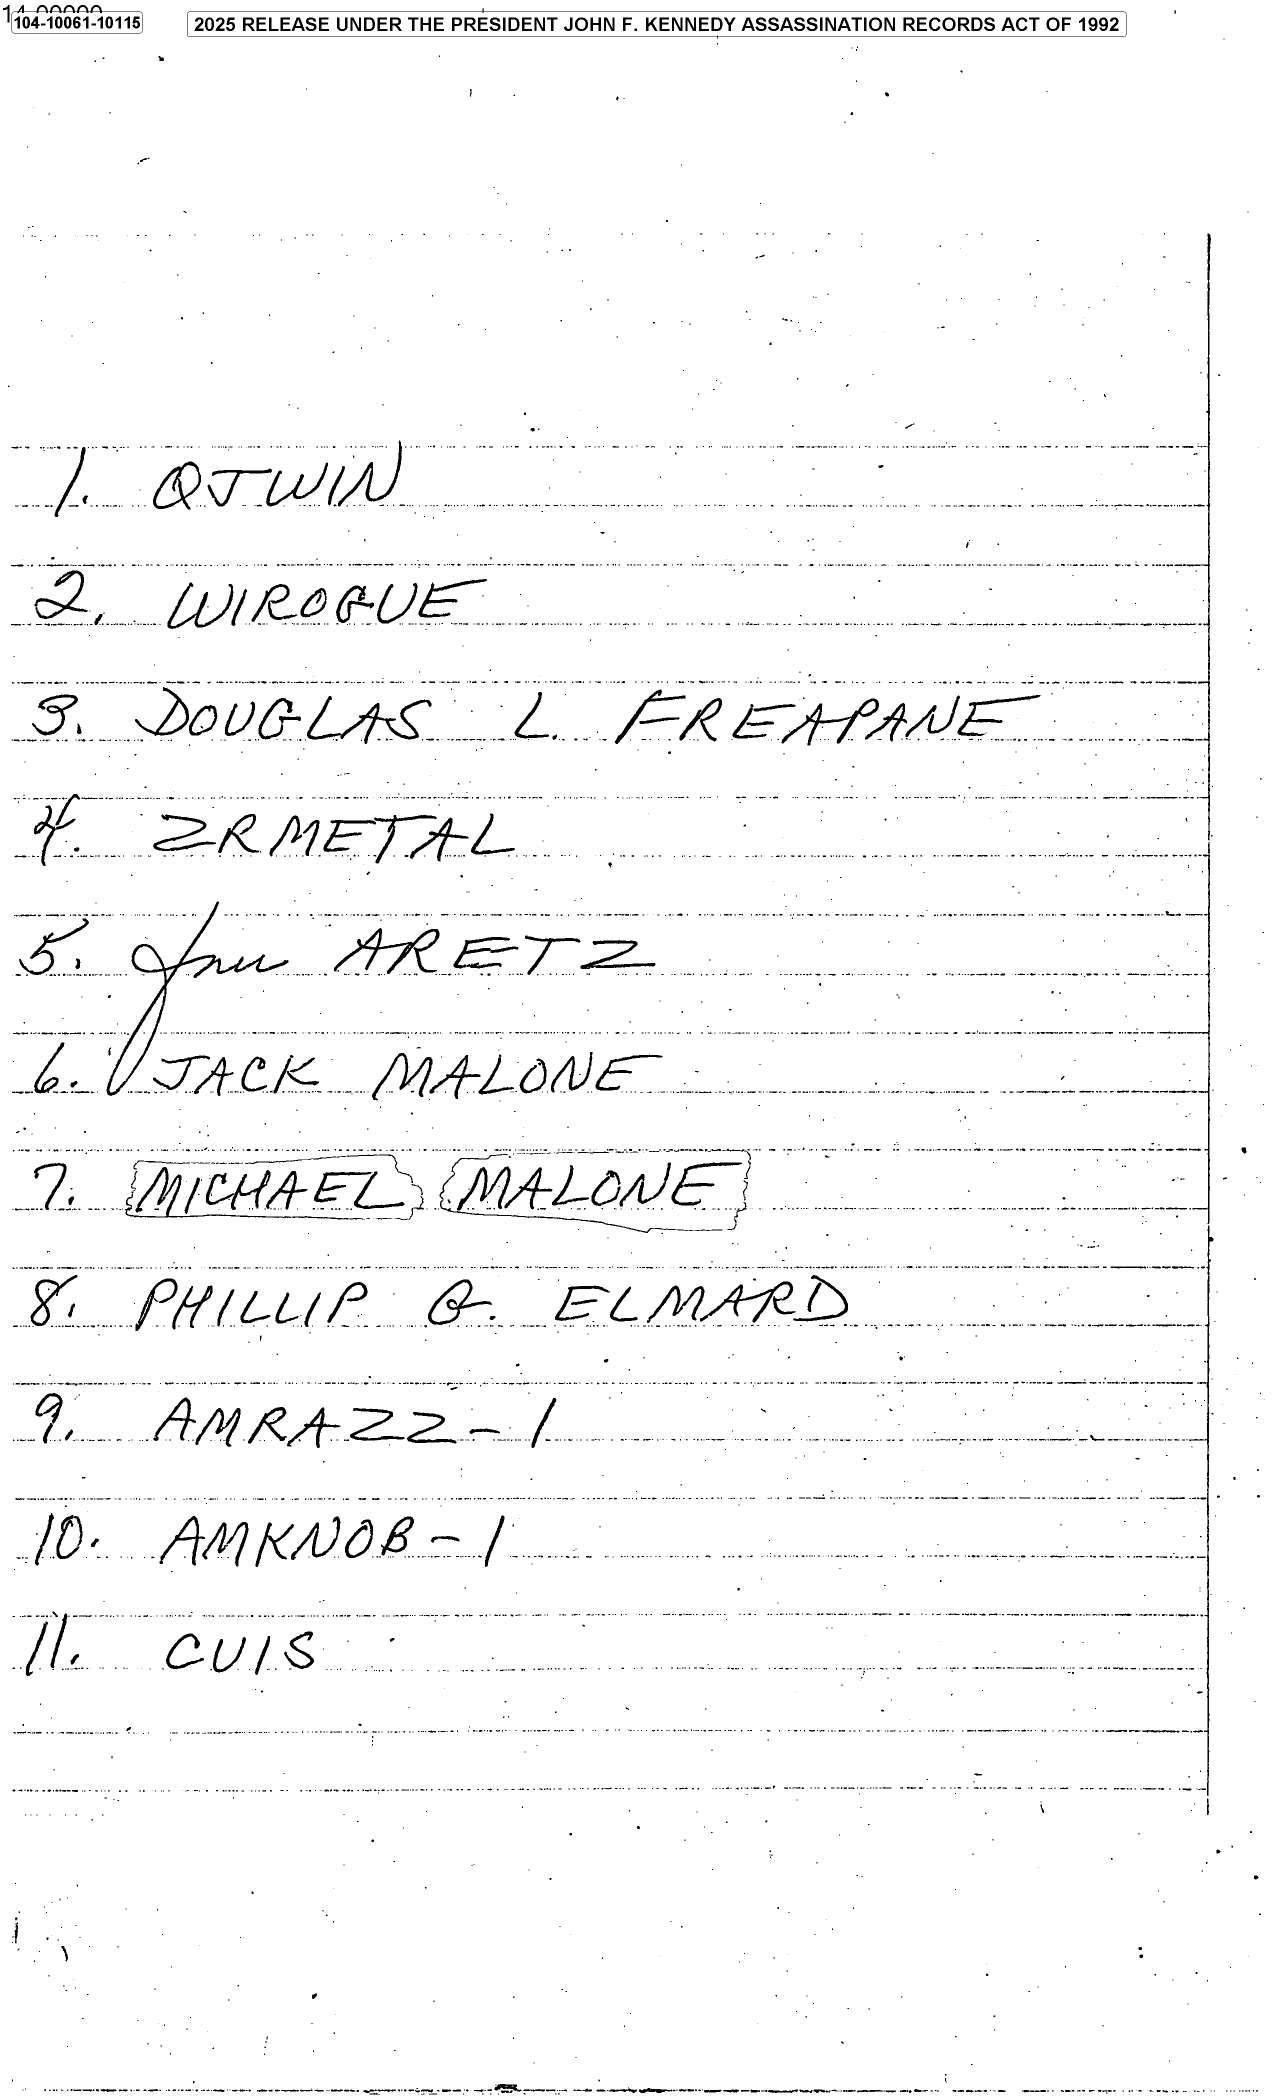 14-00000
104-10061-10115
2025 RELEASE UNDER THE PRESIDENT JOHN F. KENNEDY ASSASSINATION RECORDS ACT OF 1992
1. QJWIN
2. WIROGUE
3. DOUGLAS L. FREAPANE
4. ZRMETAL
5. ARETZ
6. JACK MALONE
7. MICHAEL MALONE
8. PHILLIP G. ELMARD
9. AMRAZZ-1
10. AMKNOB-1
11. CUIS